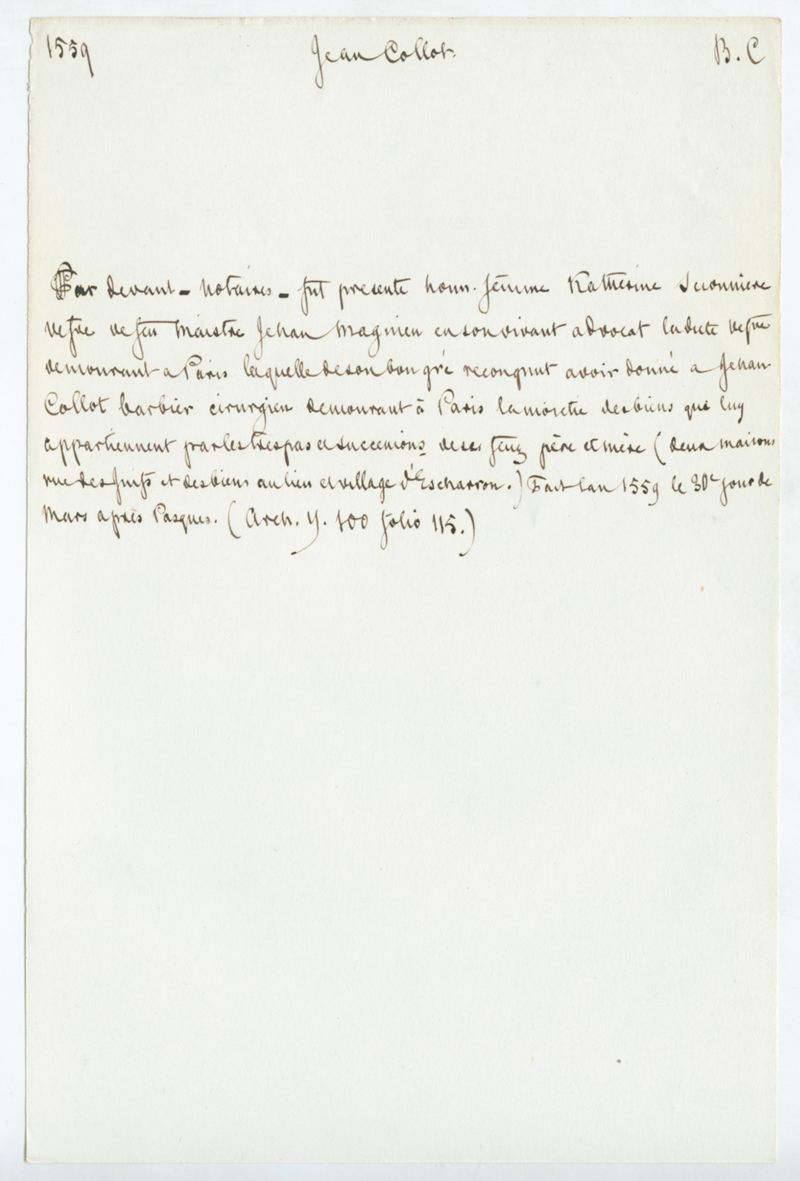 1559 Jean Collot. B. C
Par devant - notaires - fut presente honn. femme Katherine
vefve de feu Maistre Jehan Magnien en son vivant advocat ladicte vefve
demourant a Paris laquelle de son bon gré recongnut avoir donné a Jehan
Collot barbier cirurgien demourant à Paris la moictie des biens qui luy
appartiennent par les trespas et successions de ses feuz père et mère (deux maisons
rue des Juifs et des biens au lieu et village d'Escharron.) Fait lan 1559 le 30e jour de
Mars après Pasques. (Arch. Y. 100 folio 115.)